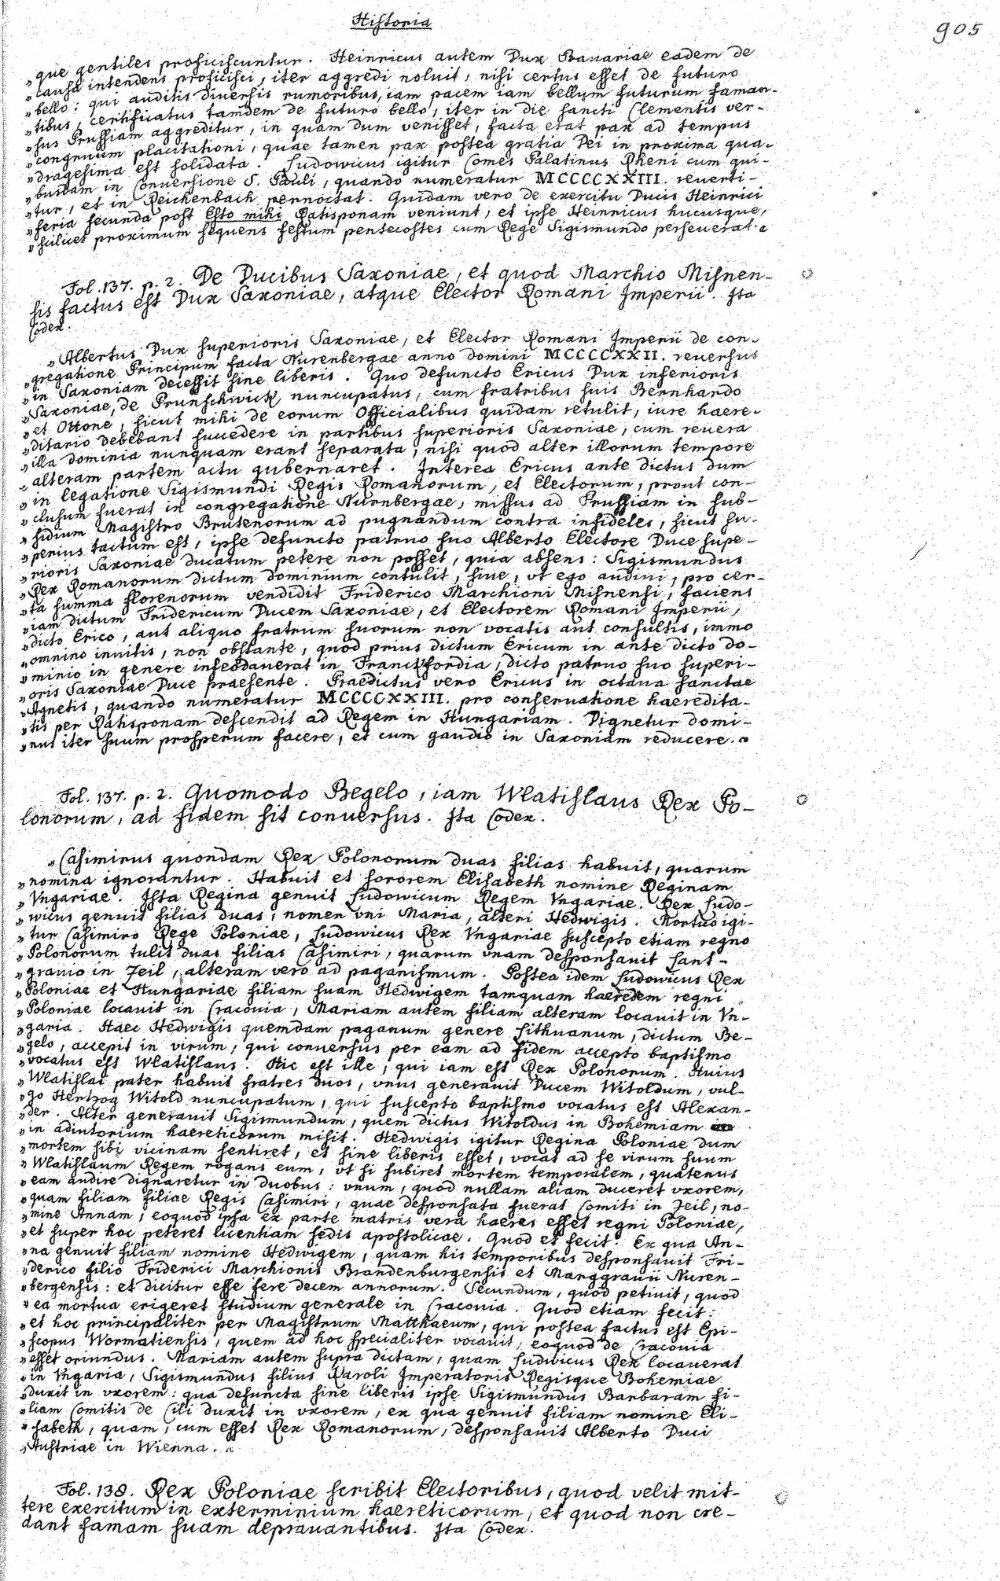 Historia
905
„que gentiles proficiscuntur. Heinricus autem Dux Bavariae eadem de
„causa intendens proficisci, iter aggredi noluit, nisi certus esset de futuro
„bello: qui auditis diversis rumoribus, iam pacem iam bellum futurum faman-
„tibus, certificatus tamdem de futuro bello, iter in die sancti Clementis ver-
„sus Prussiam aggreditur, in quam dum venisset, facta erat pax ad tempus
„congruum placitationi, quae tamen pax postea gratia Dei in proxima qua-
„dragesima est solidata. Ludowicus igitur Comes Palatinus Rheni cum qui-
„busdam in Conversione S. Pauli, quando numeratur MCCCCXXIII. reverti-
„tur, et in Reichenbach pernoctat. Quidam vero de exercitu Ducis Heinrici
„feria secunda post Esto mihi Ratisponam veniunt, et ipse Heinricus hucusque,
„scilicet proximum sequens festum pentecostes cum Rege Sigismundo perseverat.„
Fol. 137. p. 2. De Ducibus Saxoniae, et quod Marchio Misnen-
sis factus est Dux Saxoniae, atque Elector Romani Imperii. Ita
Codex.
„Albertus Dux superioris Saxoniae, et Elector Romani Imperii de con-
„gregatione Principum facta Nurenbergae anno domini MCCCCXXII. reversus
„in Saxoniam decessit sine liberis. Quo defuncto Ericus Dux inferioris
„Saxoniae, de Prunschwick nuncupatus, cum fratribus suis Bernhardo
„et Ottone, sicut mihi de eorum Officialibus quidam retulit, iure haere-
„ditario debebant succedere in partibus superioris Saxoniae, cum revera
„illa dominia nunquam erant separata, nisi quod alter illorum tempore
„alteram partem actu gubernaret. Interea Ericus ante dictus dum
„in legatione Sigismundi Regis Romanorum, et Electorum, prout con-
„clusum fuerat in congregatione Nurnbergae, missus ad Prussiam in sub-
„sidium Magistro Brutenorum ad pugnandum contra infideles, sicut su-
„perius tactum est, ipse defuncto patruo suo Alberto Electore Duce supe-
„rioris Saxoniae ducatum petere non posset, quia absens: Sigismundus
„Rex Romanorum dictum dominium contulit, sive, vt ego audivi, pro cer-
„ta summa florenorum vendidit Friderico Marchioni Misnensi, faciens
„iam dictum Fridericum Ducem Saxoniae, et Electorem Romani Imperii,
„dicto Erico, aut aliquo fratrum suorum non vocatis aut consultis, immo
„omnino invitis, non obstante, quod prius dictum Ericum in ante dicto do-
„minio in genere infeodaverat in Franckfordia, dicto patruo suo superi-
„oris Saxoniae Duce praesente. Praedictus vero Ericus in octava sanctae
„Agnetis, quando numeratur MCCCCXXIII. pro conservatione haeredita-
„tis per Ratisponam descendit ad Regem in Hungariam. Dignetur domi-
„nus iter suum prosperum facere, et cum gaudio in Saxoniam reducere.„
Fol. 137. p. 2. Quomodo Begelo, iam Wlatislaus Rex Po-
lonorum, ad fidem sit conversus. Ita Codex.
„Casimirus quondam Rex Polonorum duas filias habuit, quarum
„nomina ignorantur. Habuit et sororem Elisabeth nomine Reginam
„Vngariae. Ista Regina genuit Ludowicum Regem Vngariae. Rex Ludo-
„wicus genuit filias duas, nomen vni Maria, alteri Hedwigis. Mortuo igi-
„tur Casimiro Rege Poloniae, Ludowicus Rex Vngariae suscepto etiam regno
„Polonorum tulit duas filias Casimiri, quarum vnam desponsavit Lant-
„gravio in Zeil, alteram vero ad paganismum. Postea idem Ludowicus Rex
„Poloniae et Hungariae filiam suam Hedwigem tamquam haeredem regni
„Poloniae locavit in Craconia, Mariam autem filiam alteram locavit in Vn-
„garia. Haec Hedwigis quemdam paganum genere Lithuanum, dictum Be-
„gelo, accepit in virum, qui conversus per eam ad fidem accepto baptismo
„vocatus est Wlatislaus. Hic est ille, qui iam est Rex Polonorum. Huius
„Wlatislai pater habuit fratres duos, vnus generavit Ducem Witoldum, vul-
„go Hertzog Witold nuncupatum, qui suscepto baptismo vocatus est Alexan-
„der. Alter generavit Sigismundum, quem dictus Witoldus in Bohemiam
„in adiutorium haereticorum misit. Hedwigis igitur Regina Poloniae dum
„mortem sibi vicinam sentiret, et sine liberis esset, vocat ad se virum suum
„Wlatislaum Regem rogans eum, vt si subiret mortem temporalem, quatenus
„eam audire dignaretur in duobus: vnum, quod nullam aliam duceret vxorem,
„quam filiam filiae Regis Casimiri, quae desponsata fuerat Comiti in Zeil, no-
„mine Annam, eoquod ipsa ex parte matris vera haeres esset regni Poloniae,
„et super hoc peteret licentiam sedis apostolicae. Quod et fecit. Ex qua An-
„na genuit filiam nomine Hedwigem, quam his temporibus desponsavit Fri-
„derico filio Friderici Marchionis Brandenburgensis et Marggravii Nuren-
„bergensis: et dicitur esse fere decem annorum. Secundum, quod petivit, quod
„ea mortua erigeret studium generale in Craconia. Quod etiam fecit:
„et hoc principaliter per Magistrum Matthaeum, qui postea factus est Epi-
„scopus Wormatiensis, quem ad hoc specialiter vocavit, eoquod de Craconia
„esset oriundus. Mariam autem supra dictam, quam Ludwicus Rex locaverat
„in Vngaria, Sigismundus filius Karoli Imperatoris Regisque Bohemiae
„duxit in vxorem: qua defuncta sine liberis ipse Sigismundus Barbaram fi-
„liam Comitis de Cili duxit in vxorem, ex qua genuit filiam nomine Eli-
„sabeth, quam, cum esset Rex Romanorum, desponsavit Alberto Duci
„Austriae in Wienna.„
Fol. 138. Rex Poloniae scribit Electoribus, quod velit mit-
tere exercitum in exterminium haereticorum, et quod non cre-
dant famam suam depravantibus. Ita Codex.